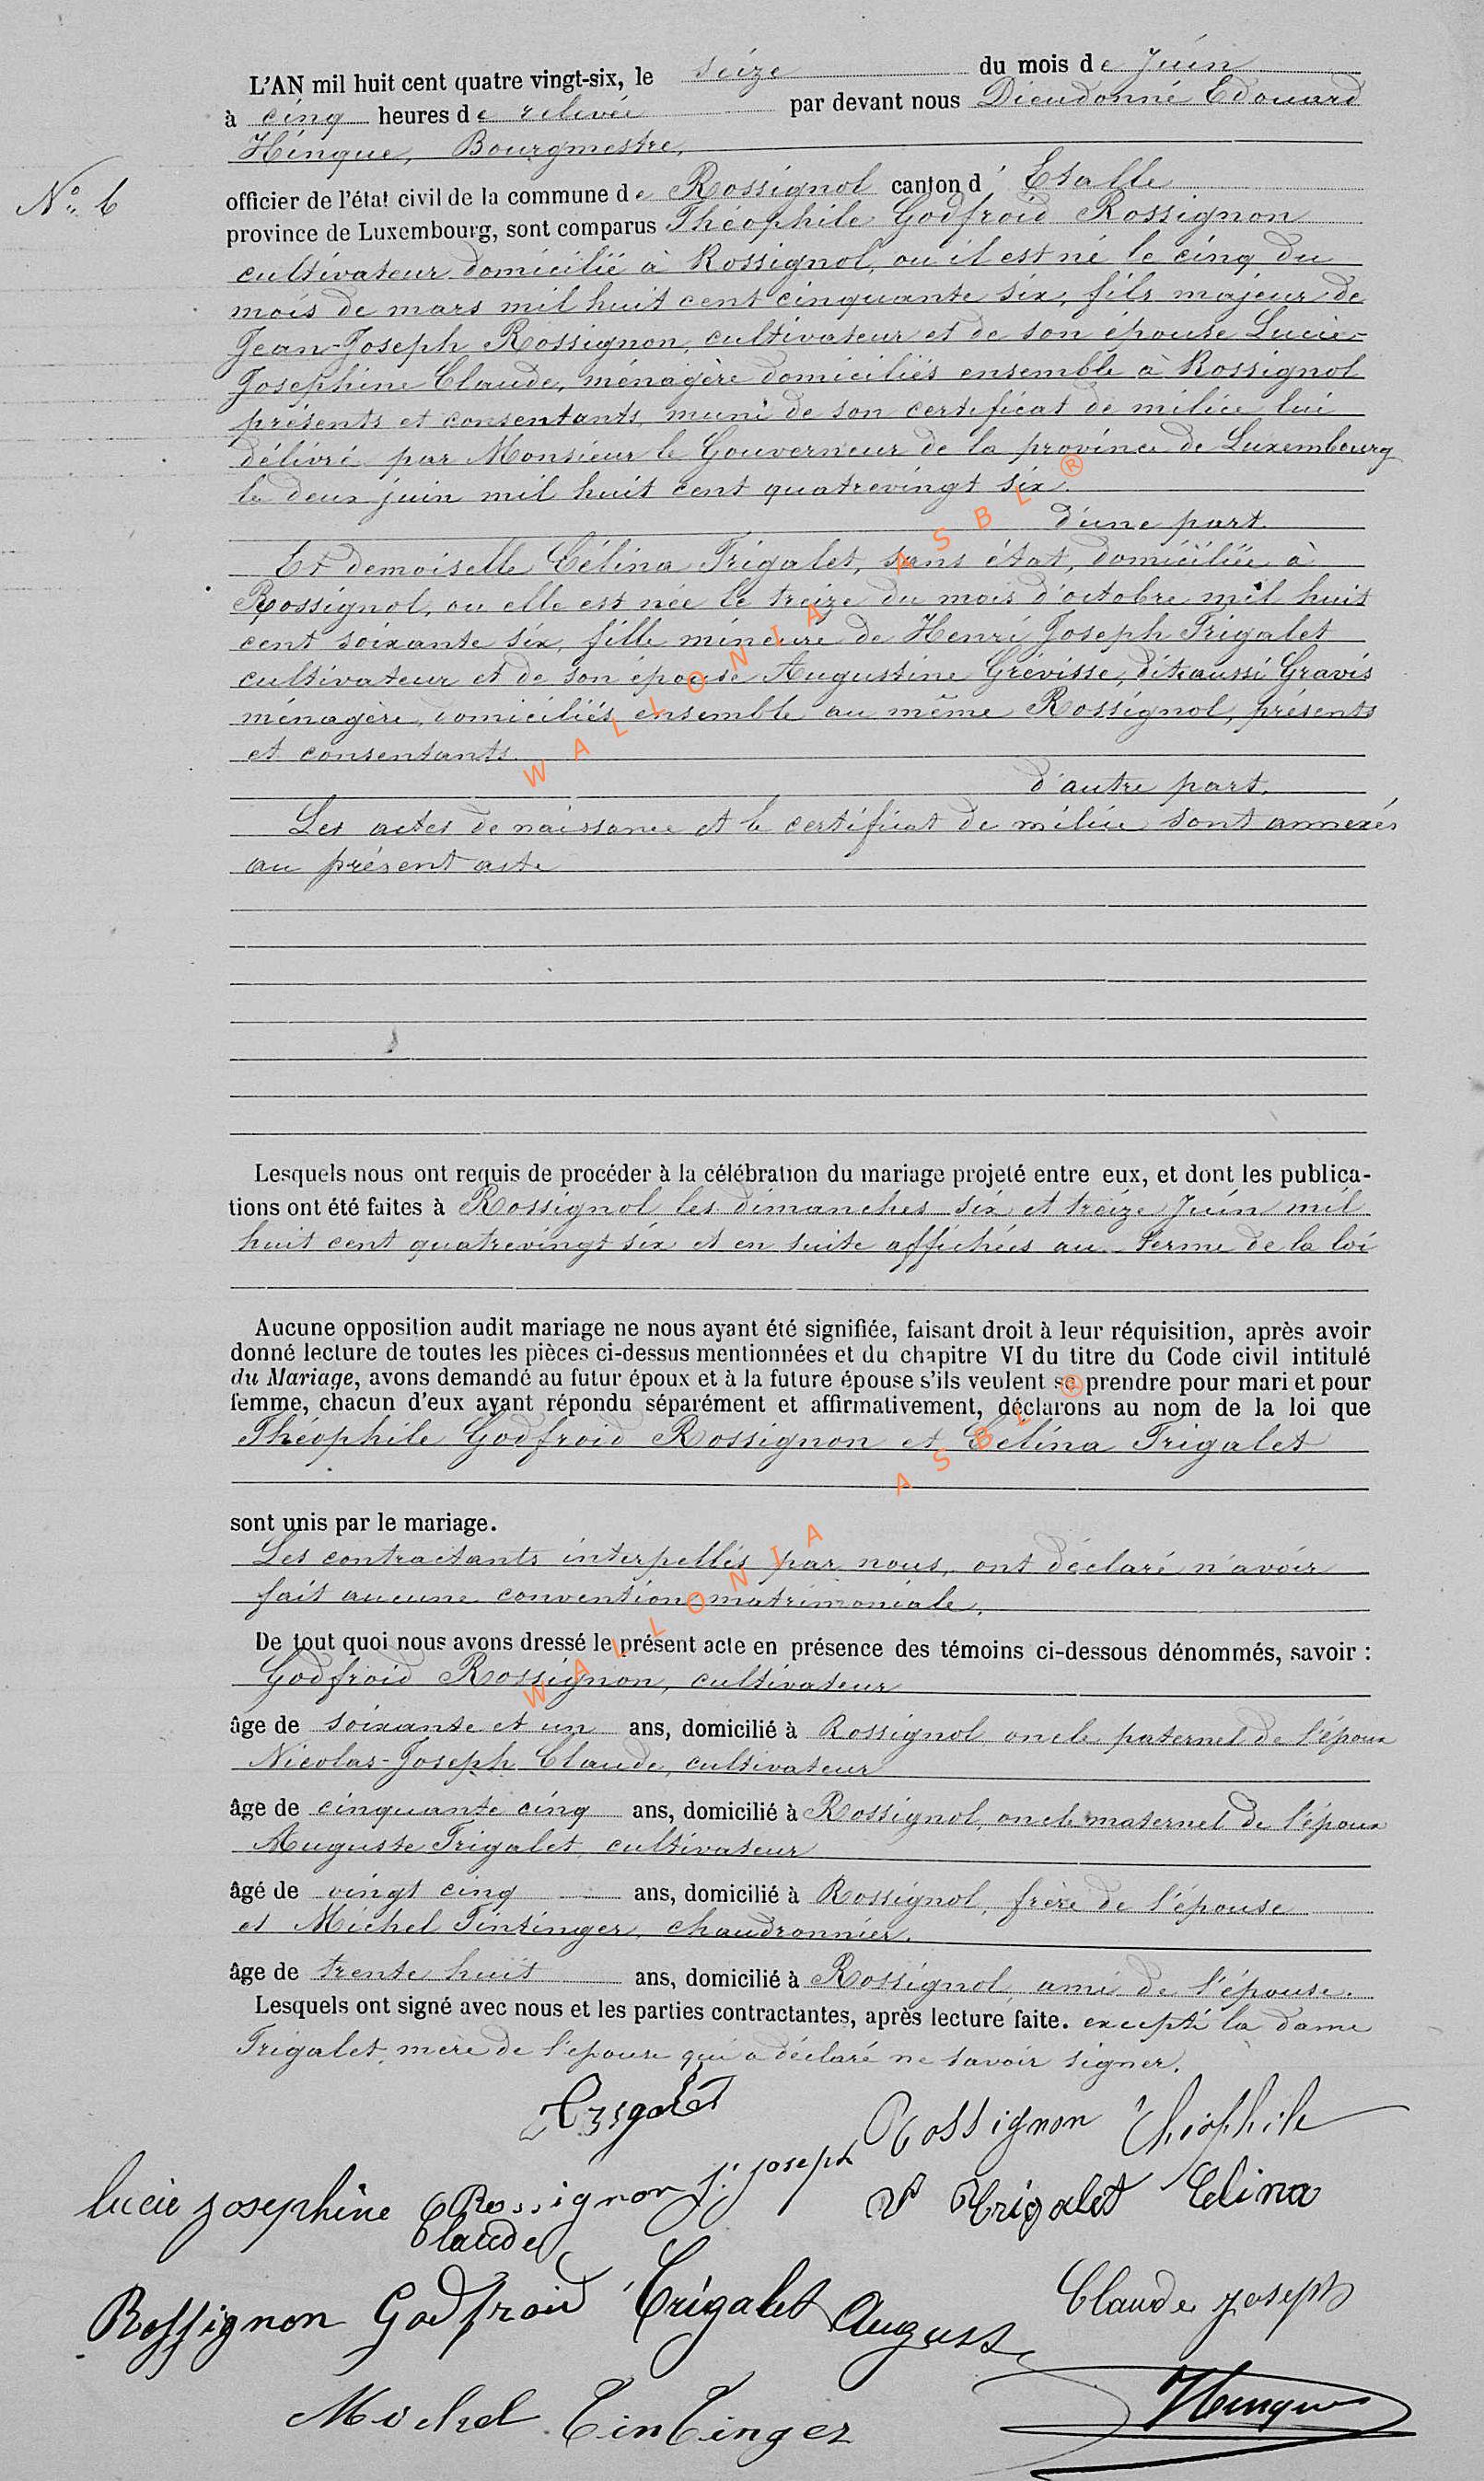 L'AN mil huit cent quatre vingt-six, le seize du mois de Juin
à cinq heures de relevée par devant nous Dieudonné Edouard
Hinque, Bourgmestre,
N° 6
officier de l'état civil de la commune de Rossignol canton d' Etalle
province de Luxembourg, sont comparus Théophile Godfroid Rossignon
cultivateur domicilié à Rossignol, ou il est né le cinq du
mois de mars mil huit cent cinquante six, fils majeur de
Jean-Joseph Rossignon, cultivateur et de son épouse Lucie-
Josephine Claude, ménagère domiciliés ensemble à Rossignol
présents et consentants, muni de son certificat de milice lui
délivré par Monsieur le Gouverneur de la province de Luxembourg
le deux juin mil huit cent quatrevingt six.
d'une part.
Et demoiselle Célina Trigalet, sans état, domiciliée à
Rossignol, ou elle est née le treize du mois d'octobre mil huit
cent soixante six, fille mineure de Henri Joseph Trigalet
cultivateur et de son épouse Augustine Grévisse, dite aussi Gravis
ménagère, domiciliés ensemble au même Rossignol, présents
et consentants.
d'autre part.
Les actes de naissance et le certificat de milice sont annexés
au présent acte
WALLONIA ASBL ®
Lesquels nous ont requis de procéder à la célébration du mariage projeté entre eux, et dont les publica-
tions ont été faites à Rossignol les dimanches six et treize Juin mil
huit cent quatrevingt six et en suite affichées au terme de la loi
Aucune opposition audit mariage ne nous ayant été signifiée, faisant droit à leur réquisition, après avoir
donné lecture de toutes les pièces ci-dessus mentionnées et du chapitre VI du titre du Code civil intitulé
du Mariage, avons demandé au futur époux et à la future épouse s'ils veulent se prendre pour mari et pour
femme, chacun d'eux ayant répondu séparément et affirmativement, déclarons au nom de la loi que
Théophile Godfroid Rossignon et Célina Trigalet
sont unis par le mariage.
Les contractants interpellés par nous, ont déclaré n'avoir
fait aucune convention matrimoniale.
WALLONIA ASBL ®
De tout quoi nous avons dressé le présent acte en présence des témoins ci-dessous dénommés, savoir :
Godfroid Rossignon, cultivateur
âge de soixante et un ans, domicilié à Rossignol oncle paternel de l'époux
Nicolas-Joseph Claude, cultivateur
âge de cinquante cinq ans, domicilié à Rossignol, oncle maternel de l'époux
Auguste Trigalet, cultivateur
âgé de vingt cinq ans, domicilié à Rossignol, frère de l'épouse
et Michel Tintinger, chaudronnier.
âge de trente huit ans, domicilié à Rossignol, ami de l'épouse.
Lesquels ont signé avec nous et les parties contractantes, après lecture faite. excepté la dame
Trigalet, mère de l'épouse qui a déclaré ne savoir signer.
Trigalet
Rossignon Théophile
Rossignon J. Joseph
Lucie Josephine Claude
Trigalet Célina
Rossignon Godfroid Trigalet August
Claude Joseph
Michel Tintinger
Hinque